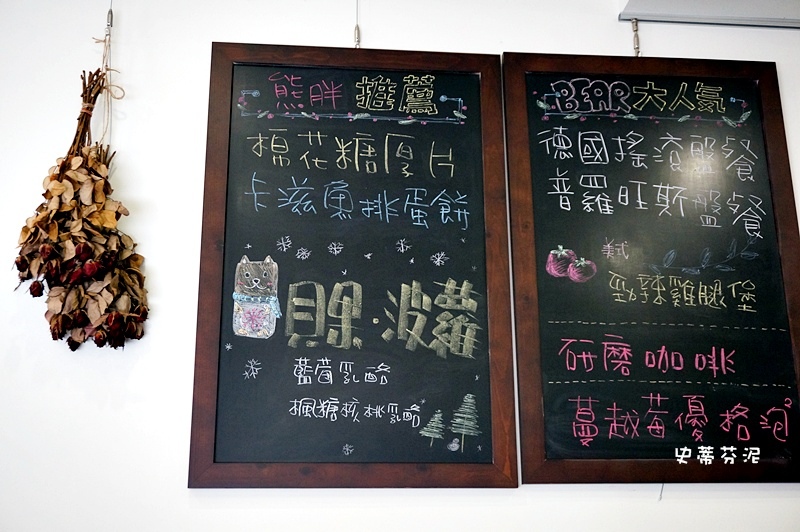 熊胖 推薦
棉花糖厚片
卡滋魚排蛋餅
貝果·波蘿
藍莓乳酪
楓糖核桃乳酪
BEAR大人氣
德國搖滾盤餐
普羅旺斯盤餐
美式
勁辣雞腿堡
研磨咖啡
蔓越莓優格泡²
史蒂芬泥